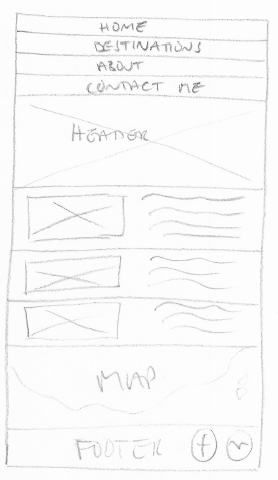 HOME
DESTINATIONS
ABOUT
CONTACT ME
HEADER
MAP
FOOTER f